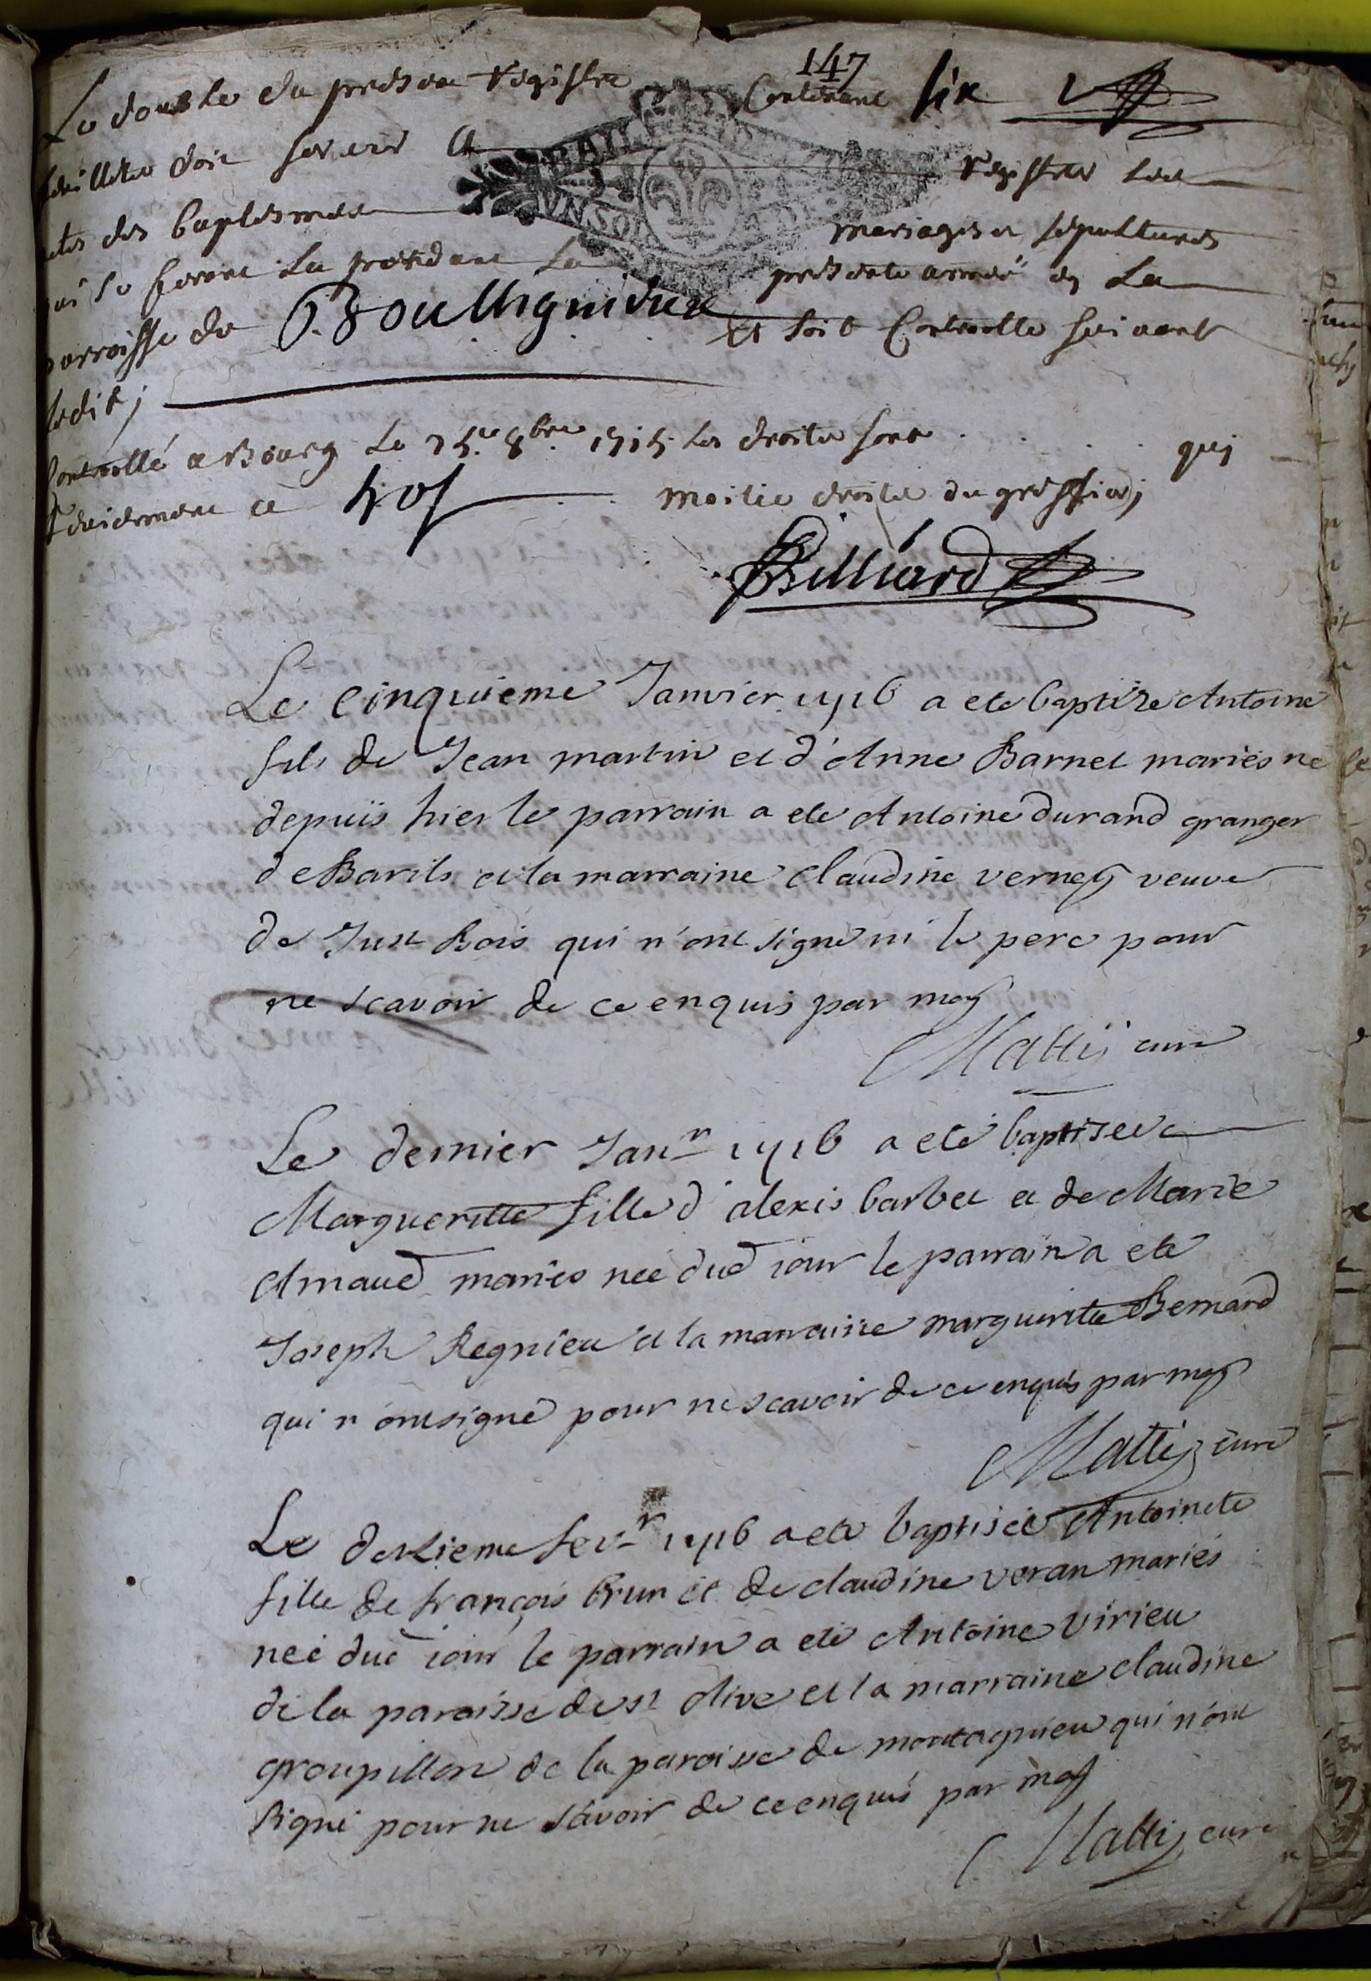 147
Le double du present registre Contenant six
feuillets doit servir a registre les
actes des baptesmes mariages et sepultures
qui se feront La pendant La presente année en La
parroisse de Boullignieux Et soit Controlle suivant
ledit;
Controllé a Bourg Le 8bre 1715 les droits sont qui
reviennent a moitie droits du greffier;
Billiard
Le cinquieme Janvier 1716 a ete baptize Antoine
fils de Jean martin et d'Anne Barnet mariés né
depuis hier le parrain a ete Antoine durand granger
de Barils et la marraine claudine verney veuve
de Just Bois qui n'ont signe ni le pere pour
ne scavoir de ce enquis par moy
Mattij curé
Le dernier Janr 1716 a eté baptiseé
Margueritte fille d'alexis barbet et de Marie
Arnaud mariés neé dud iour le parrain a ete
Joseph Regnieu et la marraine margueritte Bernard
qui n'ont signé pour ne scavoir de ce enquis par moy
Mattij curé
Le dexieme fevr 1716 a ete baptiseé Antoinete
fille de françois brun et de claudine veran mariés
neé dud iour le parrain a eté Antoine virieu
de la paroisse de st olive et la marraine claudine
groupillon de la paroisse de montagnieu qui n'ont
signé pour ne savoir de ce enquis par moy
Mattij curé